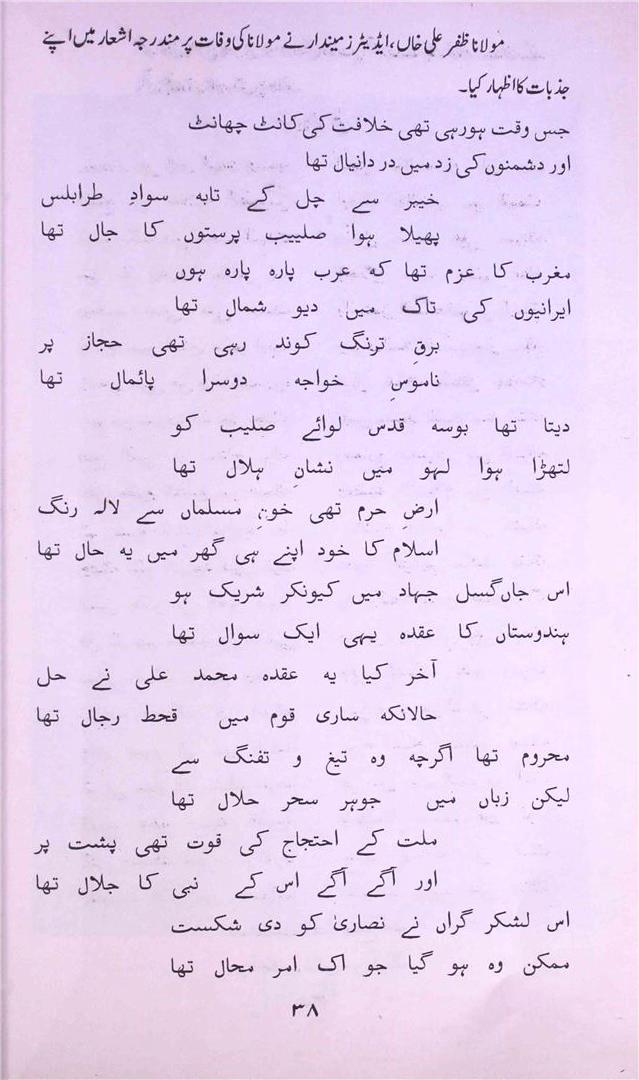 مولانا ظفر علی خاں، ایڈیٹر زمیندار نے مولانا کی وفات پر مندرجہ اشعار میں اپنے
جذبات کا اظہار کیا۔
جس وقت ہورہی تھی خلافت کی کانٹ چھانٹ
اور دشمنوں کی زد میں در دانیال تھا
خیبر سے چل کے تابہ سوادِ طرابلس
پھیلا ہوا صلییب پرستوں کا جال تھا
مغرب کا عزم تھا کہ عرب پارہ پارہ ہوں
ایرانیوں کی تاک میں دیو شمال تھا
برقِ ترنگ کوند رہی تھی حجاز پر
ناموسِ خواجہ دوسرا پائمال تھا
دیتا تھا بوسہ قدس لوائے صلیب کو
لتھڑا ہوا لہو میں نشانِ ہلال تھا
ارضِ حرم تھی خونِ مسلماں سے لالہ رنگ
اسلام کا خود اپنے ہی گھر میں یہ حال تھا
اس جاں گسل جہاد میں کیونکر شریک ہو
ہندوستاں کا عقدہ یہی ایک سوال تھا
آخر کیا یہ عقدہ محمد علی نے حل
حالانکہ ساری قوم میں قحط رجال تھا
محروم تھا اگرچہ وہ تیغ و تفنگ سے
لیکن زباں میں جوہر سحر حلال تھا
ملت کے احتجاج کی قوت تھی پشت پر
اور آگے آگے اس کے نبی کا جلال تھا
اس لشکر گراں نے نصاریٰ کو دی شکست
ممکن وہ ہو گیا جو اک امر محال تھا
۳۸